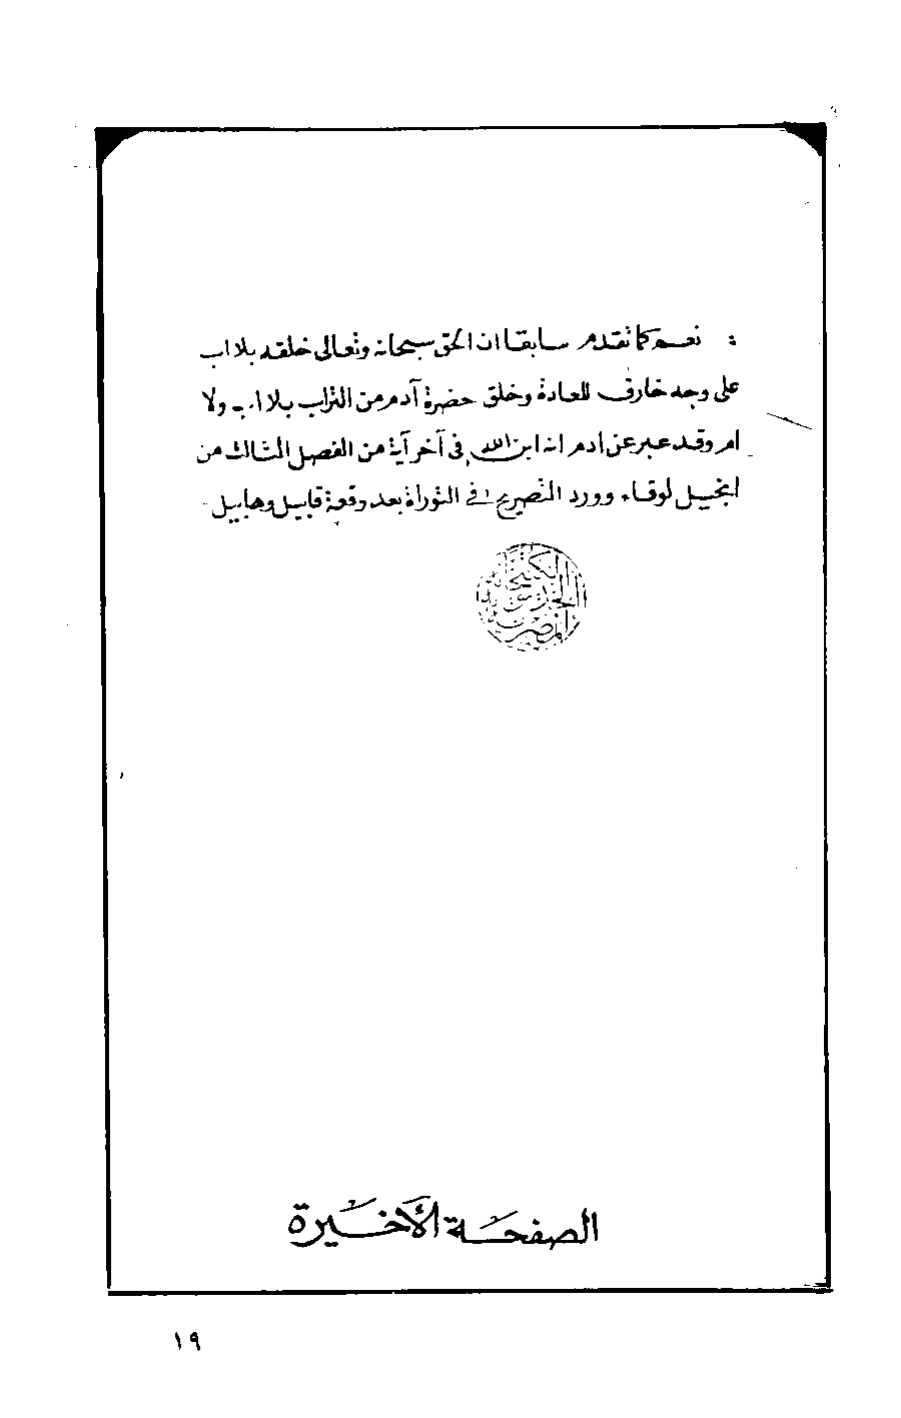 : نعم كما تقدم سابقا ان الحق سبحانه وتعالى خلقه بلا اب
على وجه خارق للعادة وخلق حضرة آدم من التراب بلا اب ولا
ام وقد عبر عن ادم انه ابن الله في آخر آية من الفصل الثالث من
انجيل لوقاء وورد التصريح في التوراة بعد وقعة قابيل وهابيل
الكتبخانة
الخديوية
المصرية
الصفحة الأخيرة
١٩